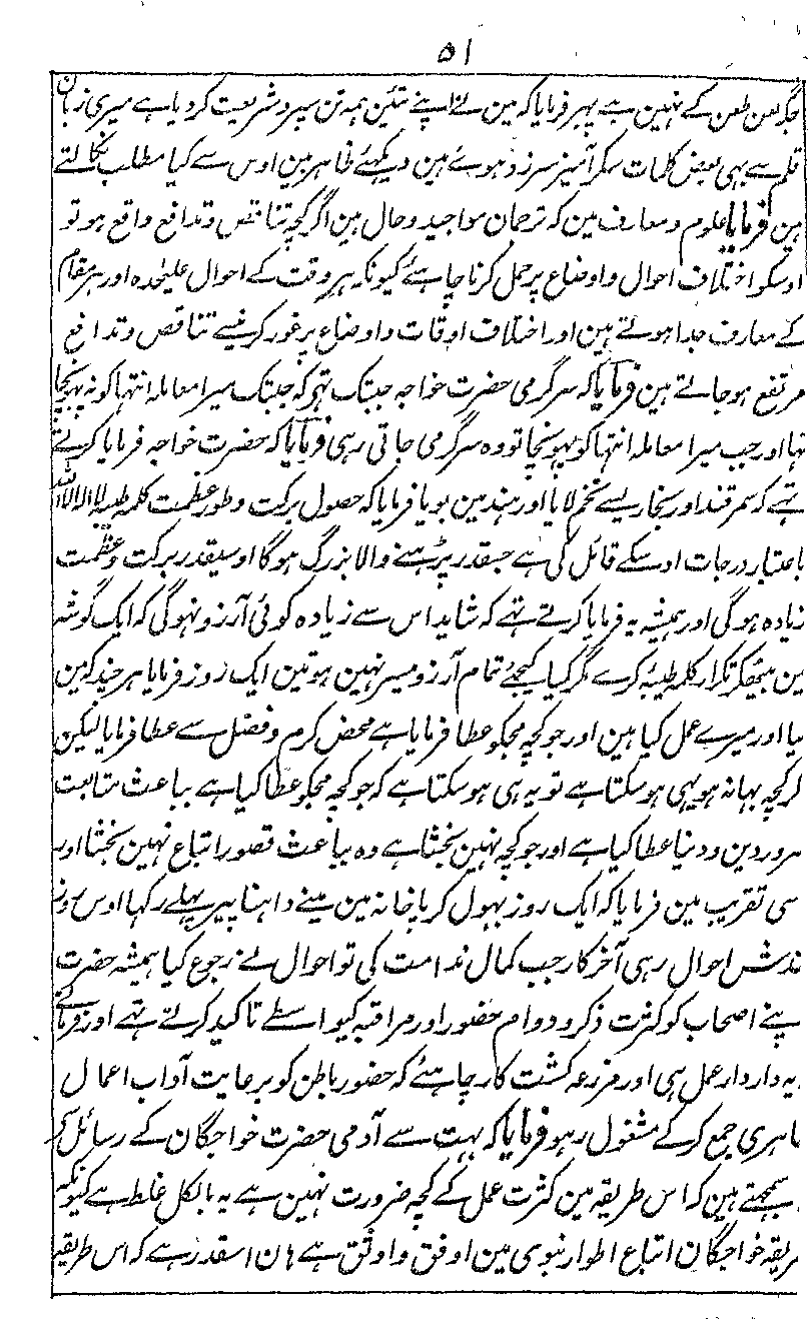 ۵۱
جگہ لعن طعن کے نہین ہے پہر فرمایا کہ مین نے اپنے تئین ہمہ تن سپرد شریعت کر دیا ہے میری زبان
قلم سے بہی بعض کلمات سکر آمیز سرزد ہوے ہین دیکہئے ظاہر بین اوس سے کیا مطلب نکالتے
ہین فرمایا علوم و معارف مین کہ ترجمان مواجید و حال ہین اگرچہ تناقص و تدافع واقع ہو تو
اوسکو اختلاف احوال و اوضاع پر حمل کرنا چاہئے کیونکہ ہر وقت کے احوال علیحدہ اور ہر مقام
کے معارف جدا ہوتے ہین اور اختلاف اوقات و اوضاع پر غور کرنیسے تناقص و تدافع
مرتفع ہو جاتے ہین فرمایا کہ سرگرمی حضرت خواجہ جبتک تہی کہ جبتک میرا معاملہ انتہا کو نہ پہنچا
تہا اور جب میرا معاملہ انتہا کو پہونچا تو وہ سرگرمی جاتی رہی فرمایا کہ حضرت خواجہ فرمایا کرتے
تہے کہ سمرقند اور بخارا سے تخم لایا اور ہند مین بویا فرمایا کہ حصول برکت و طور عظمت کلمہ طیبہ لا الہ الا اللہ
باعتبار درجات اوسکے قائل کی ہے جسقدر پڑہنے والا بزرگ ہوگا اوسیقدر برکت و عظمت
زیادہ ہوگی اور ہمیشہ یہ فرمایا کرتے تہے کہ شاید اس سے زیادہ کوئی آرزو نہوگی کہ ایک گوشہ
مین بیٹھکر تکرار کلمہ طیبہ کرے مگر کیا کیجئے تمام آرزو میسر نہین ہوتین ایک روز فرمایا ہر چند کہ مین
یا اور میرے عمل کیا ہین اور جو کچہ مجکو عطا فرمایا ہے محض کرم و فضل سے عطا فرمایا لیکن
گر کچہ بہانہ ہو بہی ہو سکتا ہے تو یہ ہی ہو سکتا ہے کہ جو کچہ مجکو عطا کیا ہے بباعث متابعت
سرور دین و دنیا عطا کیا ہے اور جو کچہ نہین بخشا ہے وہ بباعث قصور اتباع نہین بخشا اور
سی تقریب مین فرمایا کہ ایک روز بہول کر پاخانہ مین مینے داہنا پیر پہلے رکہا اوس روز
ندش احوال رہی آخر کار جب کمال ندامت کی تو احوال نے رجوع کیا ہمیشہ حضرت
پنے اصحاب کو کثرت ذکر و دوام حضور اور مراقبہ کیواسطے تاکید کرتے تہے اور فرماتے
یہ دار دار عمل ہی اور مزرعہ کشت کار چاہئے کہ حضور باطن کو برعایت آداب اعمال
ظاہری جمع کر کے مشغول رہو فرمایا کہ بہت سے آدمی حضرت خواجگان کے رسائل
سمجہتے ہین کہ اس طریقہ مین کثرت عمل کے کچہ ضرورت نہین ہے یہ بالکل غلط ہے کیونکہ
طریقہ خواجگان اتباع اطوار نبوی مین اوفق و اوثق ہے ہان اسقدر ہے کہ اس طریقہ